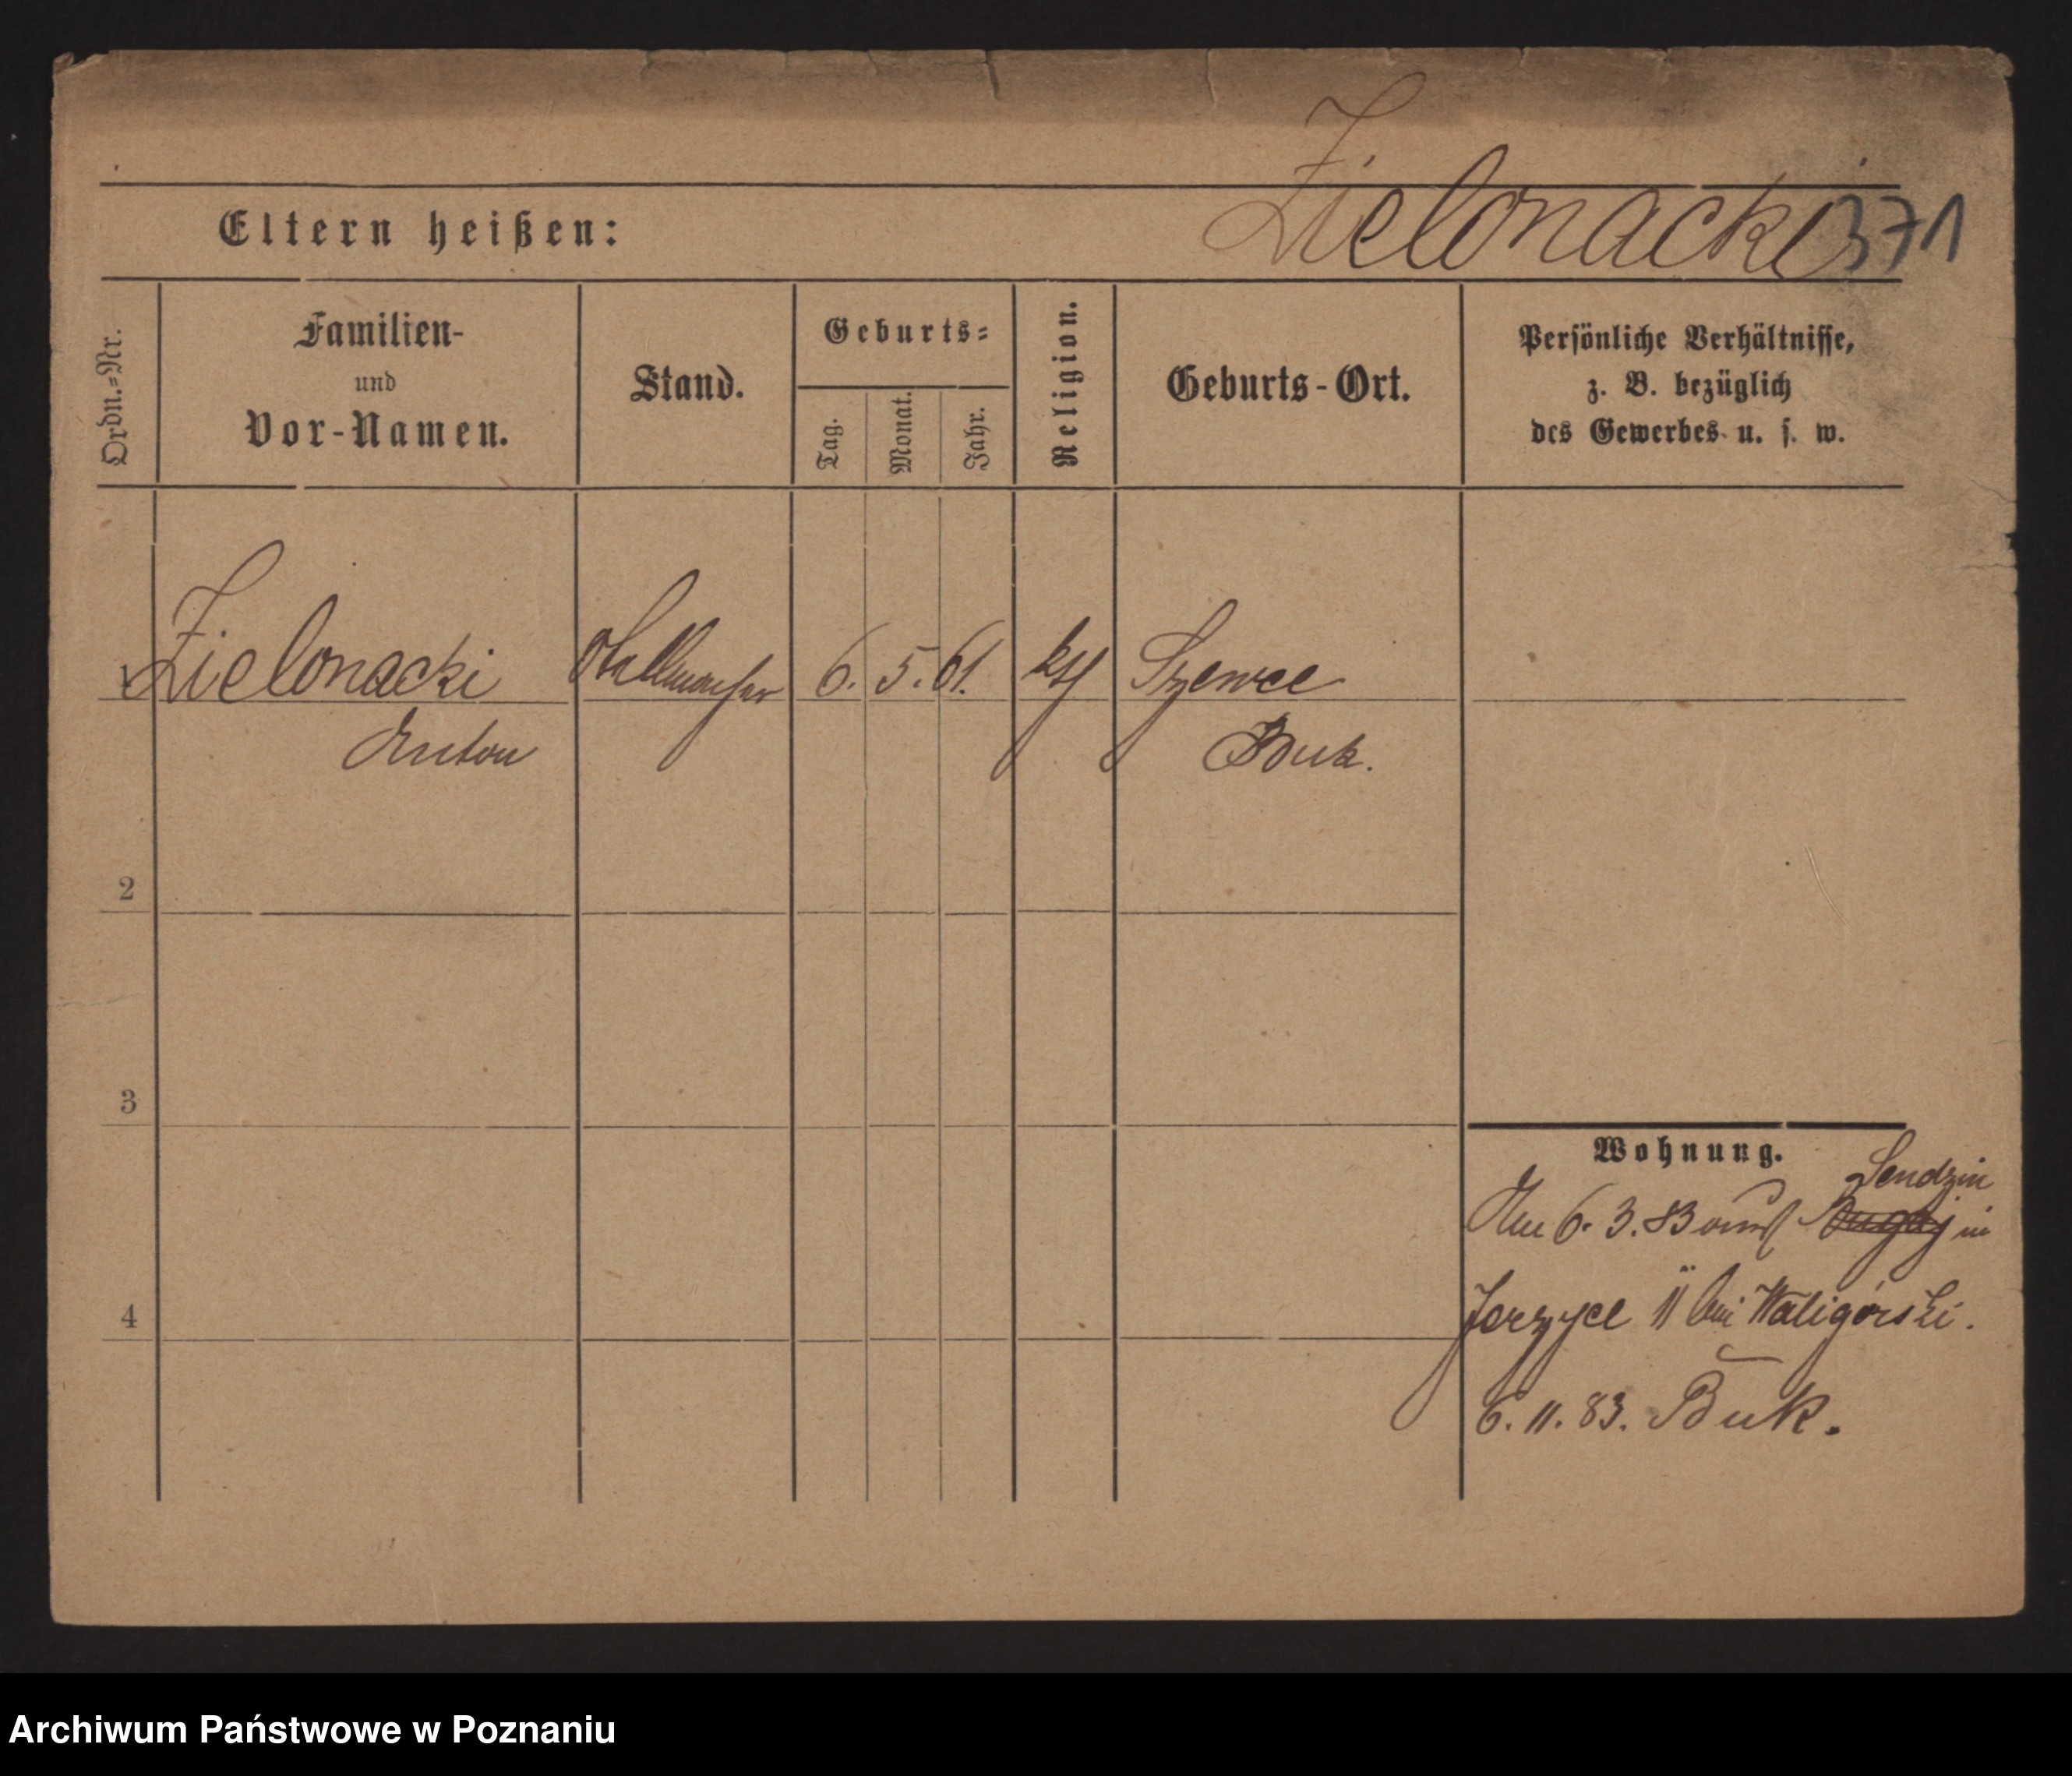 Zielonacki 371
Eltern heißen:
Ordn.=Nr.
Familien-
und
Vor-Namen.
Stand.
Geburts=
Tag.
Monat.
Jahr.
Religion.
Geburts-Ort.
Persönliche Verhältnisse,
z. B. bezüglich
des Gewerbes u. s. w.
1 Zielonacki Stellmacher 6. 5. 61. kth Szewce
Anton Buk.
2
3
4
Wohnung.
Sendzin
Am 6. 3. 83 aus in
Jerzyce 11 bei Waligórski.
6. 11. 83. Buk.
Archiwum Państwowe w Poznaniu